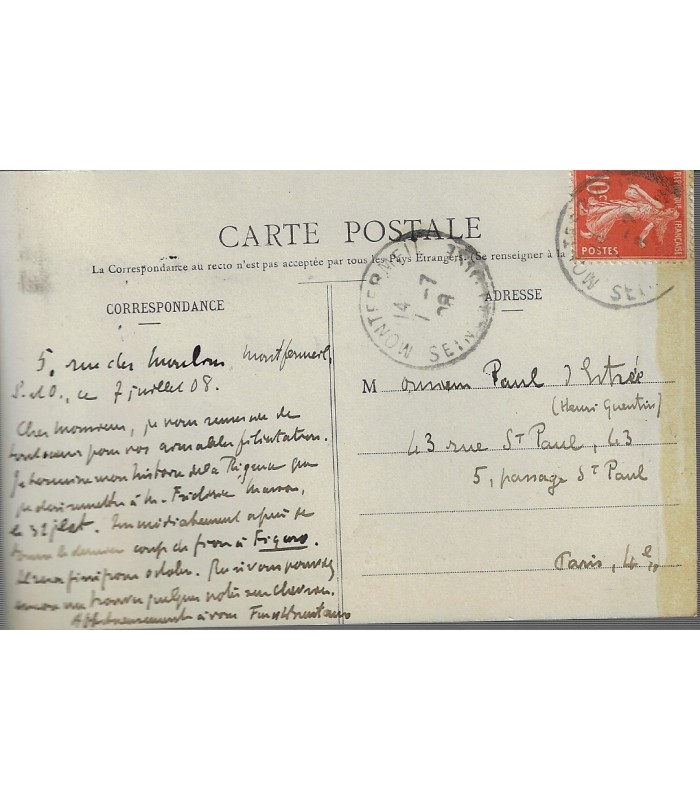 10c
REPUBLIQUE FRANÇAISE
POSTES
CARTE POSTALE
La Correspondance au recto n'est pas acceptée par tous les Pays Etrangers. (Se renseigner à la
CORRESPONDANCE
ADRESSE
MONTFERMEIL
14
1 -7
08
SEINE
5, rue des Moulins Montfermeil,
S. et O., ce 7 juillet 08.
Cher Monsieur, je vous remercie de
tout cœur pour vos aimables félicitations.
Je termine mon histoire de la Régence que
je dois remettre à M. Frédéric Masson,
le 31 juillet. Immédiatement après je
donne le dernier coup de à Figaro.
Il sera fini pour octobre. si vous pouvez
encore me trouver quelques notes sur
à vous Funck-Brentano
Monsieur Paul d'Estrée
(Henri Quentin)
43 rue St Paul, 43
5, passage St Paul
Paris, 4e